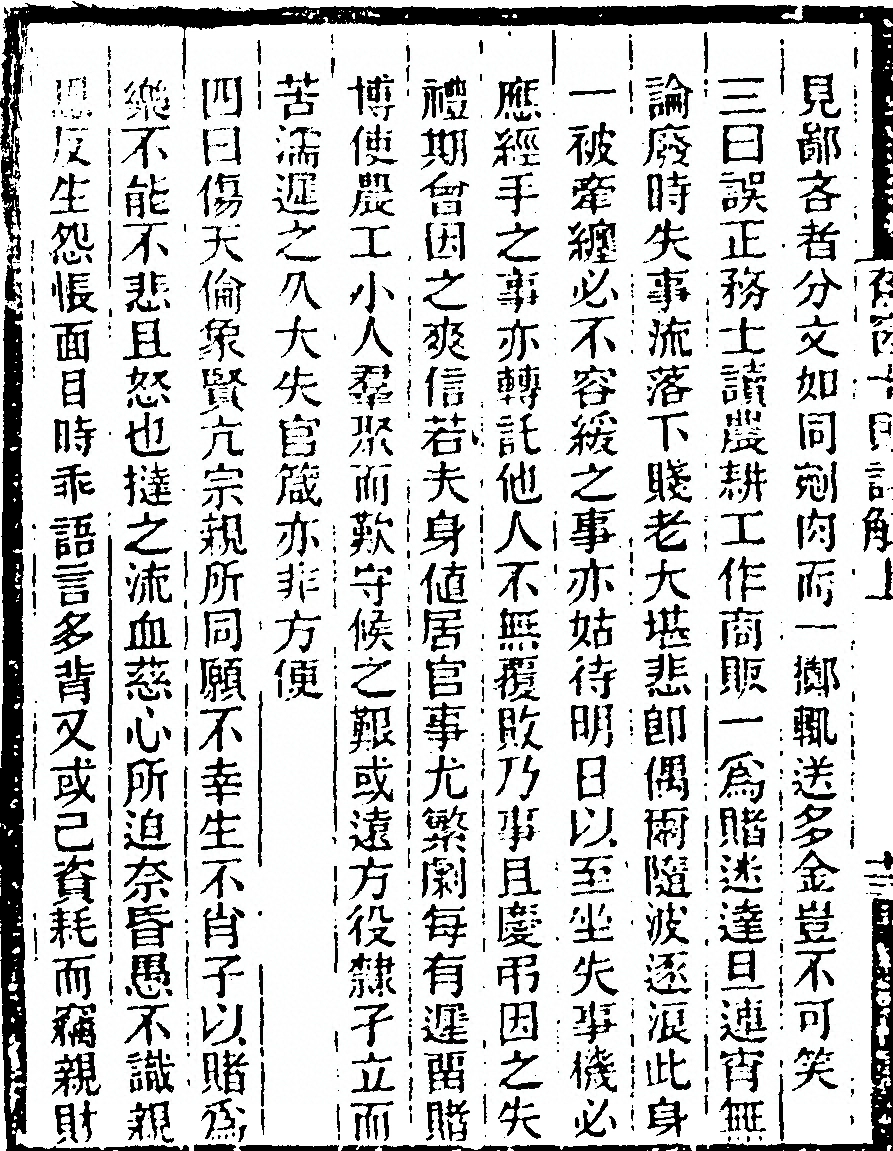 見鄙吝者分文如同剜肉而一擲輒送多金豈不可笑
三曰誤正務士讀農耕工作商販一爲賭迷達旦連宵無
論廢時失事流落下賤老大堪悲卽偶爾隨波逐浪此身
一被牽纏必不容緩之事亦姑待明日以至坐失事機必
應經手之事亦轉託他人不無覆敗乃事且慶弔因之失
禮期會因之爽信若夫身値居官事尤繁劇每有遲畱賭
博使農工小人羣聚而歎守候之艱或遠方役隸孑立而
苦濡遲之久大失官箴亦非方便
四曰傷天倫象賢亢宗親所同願不幸生不肖子以賭爲
樂不能不悲且怒也撻之流血慈心所迫奈昏愚不識親
恩反生怨悵面目時乖語言多背又或己資耗而竊親財
十則註解上
十三